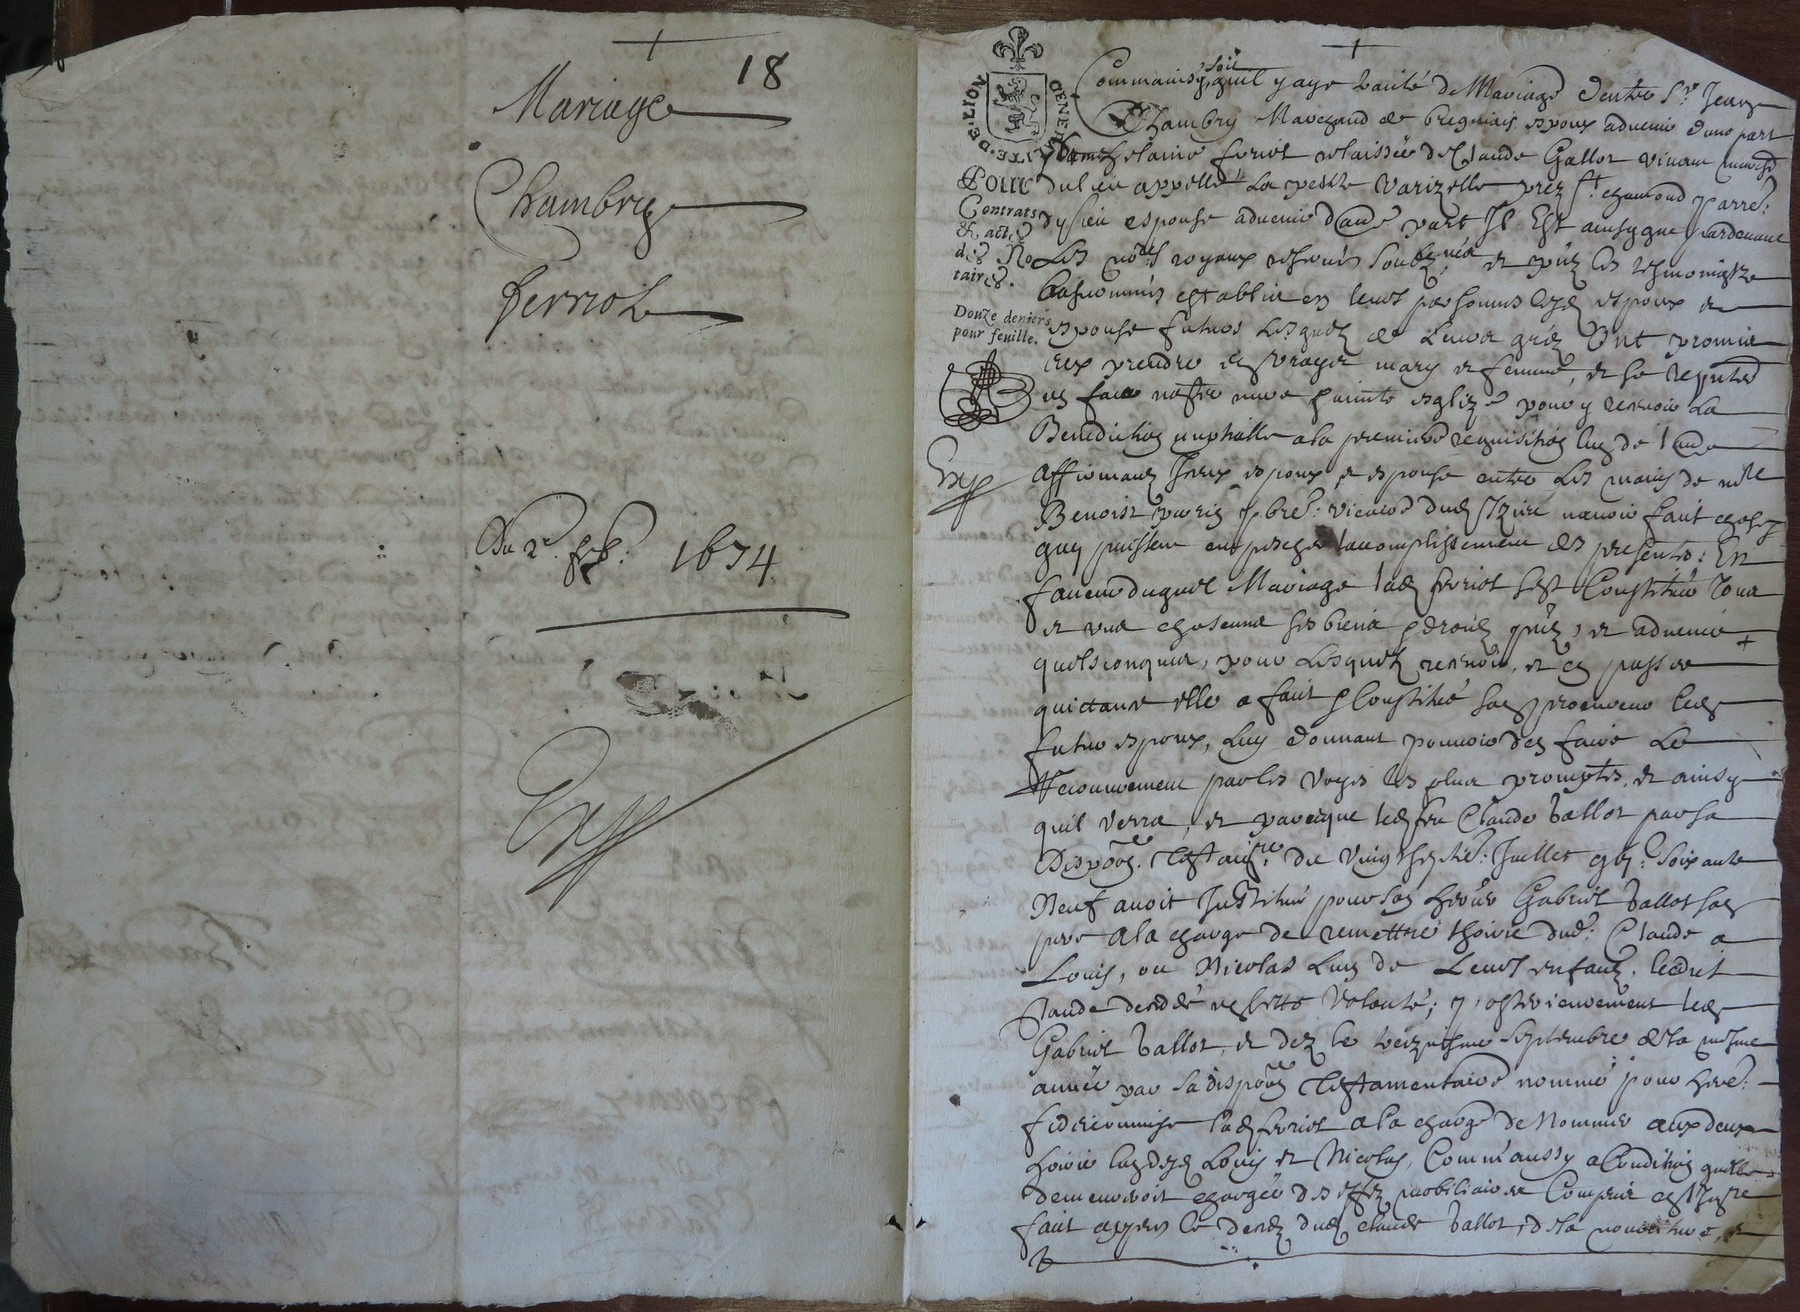 18
Mariage
Chambry
Ferriol
Du 2e feb: 1674
Exp
GENERALITE·DE·LION
POUR
Contrats
& actes
des No
taires.
Douze deniers
pour feuille.
Exp
Comm'ainsy soit quil y aye traité de Mariage d'entre Sr Jean
Chambry Marchand de brignais espoux advenir d'une part
helaine feriol relaissée de Claude Gallot vivant march
du lieu appellé la petite varizelle prez St chamond
espouse advenir d'autre part Il Est ainsy que pardevant
Les nores royaux reservés soubznés et prnz les tesmoingtz
bas nommés establir en leurs personnes lesd espoux et
espouse futurs Lesquelz de Leurs gréz Ont promis
prendre en vrayes mary et femme, et se
en face nostre mere sainte esglize pour y recevoir La
Benediction nuptialle a la premiere requisition lun de lautre
Affirmant Iceux espoux et espouse entre Les mains de mre
Benoist pbre: vicaire dud navoir fait chose
quy puissent empescher laccomplissement des presentes: En
faveur duquel Mariage lad ferriol sest Constitué tous
et uns chascuns ses biens droitz prnz, et advenir
quelsconques, pour Lesquelz recevoir, et en passer
quictance elle a fait & Constitué son procureur led
futur espoux, luy donnant pouvoir den faire Le
Recouvrement par les voyes les plus promptes, et ainsy
quil verra, et parce que led feu Claude Vallot par sa
Dispoon. Testamre: du vingt sep: Juillet gbi: soixante
Neuf avoit Institué pour son herer Gabriel Vallot son
pere a la charge de remettre lhoirie dud: Claude a
Louis, ou Nicolas lun de Leurs enfans, ledit
Claude decedé en cette volonté; & posterieurement led
Gabriel Vallot, et dez le treiziesme Septembre de la mesme
année par sa dispoon Testamentaire nommé pour here:
fideicommise lad ferriol a la charge de Nommer aux deux
hoirie lun desd Louis et Nicolas, Comm'aussy a Condition quelle
demeureroit chargée des effetz mobiliaires Compris en l'Inre
fait apres le decez dud claude Vallot, de la nourriture, et